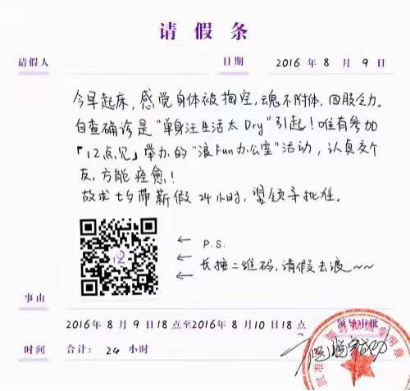 请假条
请假人 日期 2016 年 8 月 9 日
今早起床，感觉身体被掏空，魂不附体，四肢乏力。
自查确诊是“单身汪生活太Dry”引起！唯有参加
「12点见」举办的“浪Fun办公室”活动，认真交个
友，方能痊愈！
故求七夕带薪假24小时，望领导批准。
12
← P.S.
← 长按二维码，请假去浪~~
←
事由
2016年 8 月 9 日18 点至2016年 8 月10 日18 点
时间 合计： 24 小时